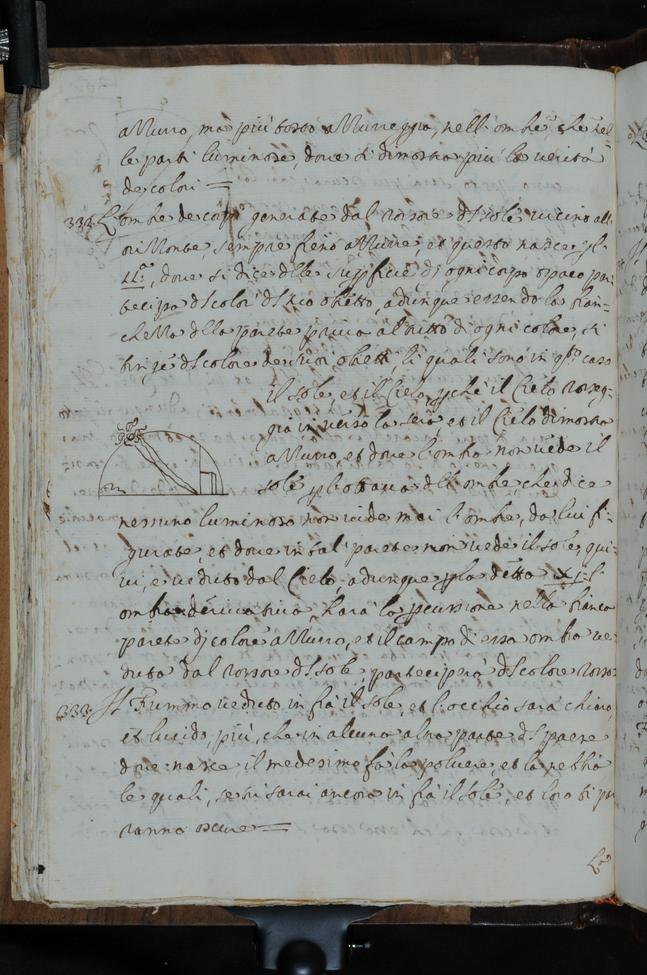 azzurro, ma più tosto azzurreggia, nell'ombre che nel-
le parti luminose, dove si dimostra più la verità
de colori =
332. L'ombre de corpi generate dal rossore del sole vicino all'
orizzonte, sempre fieno azzurre et questo nasce pl.
11.a, dove si dice della superficie di ogni corpo opaco par-
tecipa del color del suo obietto, adunque essendo la bian-
chezza della parete priva al tutto di ogni colore, si
tinge del colore de suoi obietti, li quali sono in qsto caso
il sole et il Cielo, pche il Cielo rosseg-
gia in verso la sera et il Cielo dimostra
azzurro, et dove l'ombra non vede il
sole pl'ottava dell'ombre che dice
nessuno luminoso non vide mai l'ombre, da lui fi-
gurate, et dove in tal parete non vede il sole, qui-
vi, e veduto dal Cielo adunque pla detta XI l'
ombra derivativa, harà la pcussione nella bianca
parete di colore azzurro, et il campo d'essa ombra ve-
duto dal rossore del sole parteciperà del colore rosso
333. Il Fummo veduto in frà il sole, et l'occhio sarà chiaro,
et lucido, più, che in alcuna altra parte del paese
dove nasce il medesimo fà la polvere, et la nebbia
le quali, se tu sarai ancora in frà il sole, et loro ti par
ranno oscure =
La